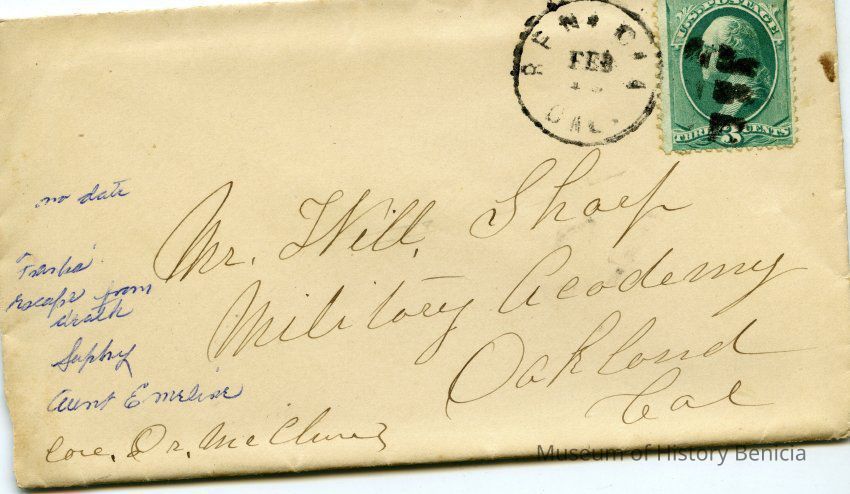 BENICIA
FEB
CAL.
U.S. POSTAGE
THREE 3 CENTS
Mr. Will. Sharp
Military Academy
Oakland
Cal
no date
escape from
death
Sophy
Aunt Emeline
Care. Dr. McClure's
Museum of History Benicia